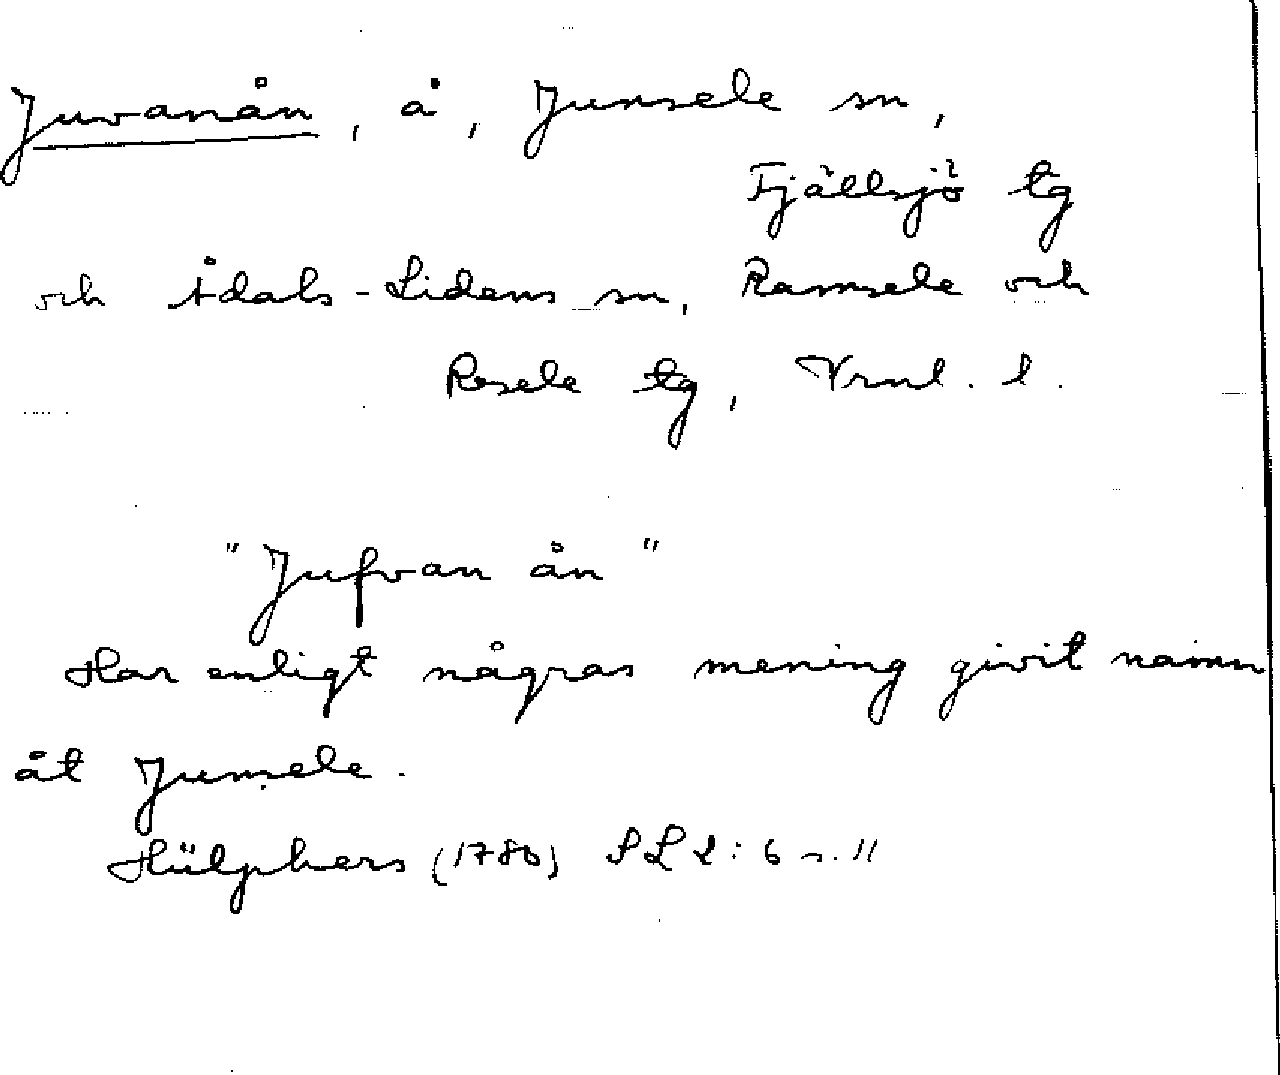 Juvanån, å, Junsele sn,
Fjällsjö tg
och Ådals-Lidens sn, Ramsele och
Resele tg, Vrnl. l.
"Jufvan ån"
Har enligt någras mening givit namn
åt Junsele.
Hülphers (1780) SLL: 6 s. 11